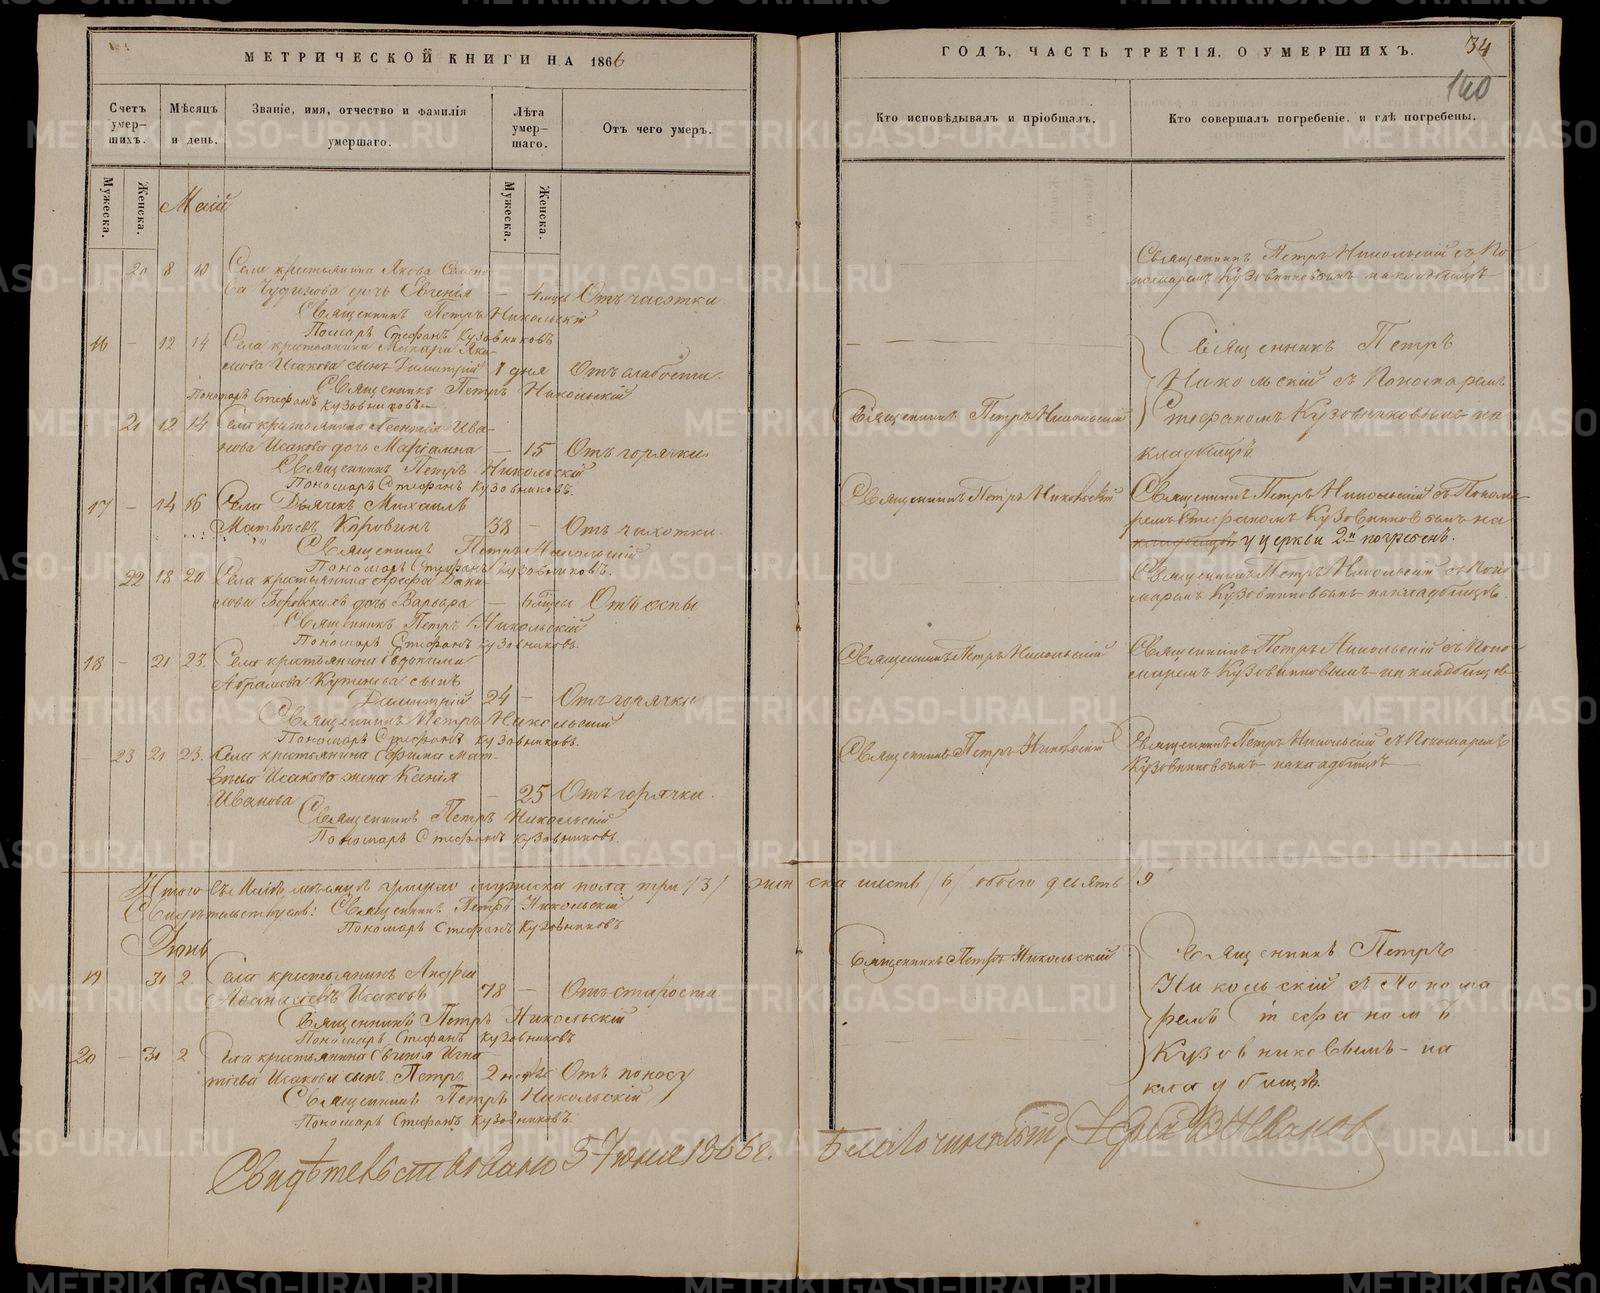 МЕТРИЧЕСКОЙ КНИГИ НА 1866
ГОДЪ, ЧАСТЬ ТРЕТІЯ, О УМЕРШИХЪ.
34
140
Счетъ умер-шихъ.
Мѣсяцъ и день.
Званіе, имя, отчество и фамилія умершаго.
Лѣта умер-шаго.
Отъ чего умеръ.
Кто исповѣдывалъ и пріобщалъ.
Кто совершалъ погребеніе, и гдѣ погребены.
Мужеска.
Женска.
Мужеска.
Женска.
Маій
20 8 10 Села крестьянина Якова
дочь Евгенія — 4 Отъ чахотки.
Священникъ Петръ Никольскій
Пономарь Стефанъ Кузовниковъ
Священникъ Петръ Никольскій съ По-
номаремъ Кузовниковымъ на кладбищѣ
16 — 12 14 Села крестьянина Макара Яко-
влева Исакова сынъ Димитрій 8 дня Отъ слабости.
Священникъ Петръ Никольскій
Пономарь Стефанъ Кузовниковъ
Священникъ Петръ
Никольскій съ Пономаремъ
Стефаномъ Кузовниковымъ на
кладбищѣ
21 12 14 Села крестьянина Леонтья Ива-
нова Исакова дочь Маріамна — 15 Отъ горячки.
Священникъ Петръ Никольскій
Пономарь Стефанъ Кузовниковъ.
Священникъ Петръ Никольскій
17 — 14 16 Села Дьячекъ Михаилъ
Матвѣевъ Коровинъ 38 — Отъ чахотки.
Священникъ Петръ Никольскій
Пономарь Стефанъ Кузовниковъ.
Священникъ Петръ Никольскій
Священникъ Петръ Никольскій съ Понома-
ремъ Стефаномъ Кузовниковымъ на
кладбищѣ у церкви погребенъ.
22 18 20 Села крестьянина Арефы Дани-
лова дочь Варвара — 6 Отъ оспы
Священникъ Петръ Никольскій
Пономарь Стефанъ Кузовниковъ.
Священникъ Петръ Никольскій съ Поно-
маремъ Кузовниковымъ на кладбищѣ.
18 — 21 23. Села крестьянина Евдокима
Абрамова сынъ
Димитрій 24 — Отъ горячки
Священникъ Петръ Никольскій
Пономарь Стефанъ Кузовниковъ.
Священникъ Петръ Никольскій
Священникъ Петръ Никольскій съ Поно-
маремъ Кузовниковымъ на кладбищѣ
23 21 23. Села крестьянина Мат-
вѣева Исакова жена Ксенія
Иванова — 25 Отъ горячки.
Священникъ Петръ Никольскій
Пономарь Стефанъ Кузовниковъ.
Священникъ Петръ Никольскій
Священникъ Петръ Никольскій съ Пономаремъ
Кузовниковымъ на кладбищѣ
Итого въ Маіѣ мѣсяцѣ умерло мужеска пола три /3/ женска шесть /6/ обоего девять 9
Свидѣтельствуемъ: Священникъ Петръ Никольскій
Пономарь Стефанъ Кузовниковъ
Іюнь
19 31 2 Села крестьянинъ Андрей
Аѳанасіевъ Исаковъ 78 — Отъ старости
Священникъ Петръ Никольскій
Пономарь Стефанъ Кузовниковъ
Священникъ Петръ Никольскій
Священникъ Петръ
Никольскій съ Понома
ремъ Стефаномъ
Кузовниковымъ на
кладбищѣ.
20 — 31 2 Села крестьянина Евгенія Игна-
тіева Исакова сынъ Петръ 2 Отъ поносу
Священникъ Петръ Никольскій
Пономарь Стефанъ Кузовниковъ
Свидѣтельствовано 5 Іюня 1866 г. Благочинный, Іерей Ивановъ
METRIKI.GASO-URAL.RU